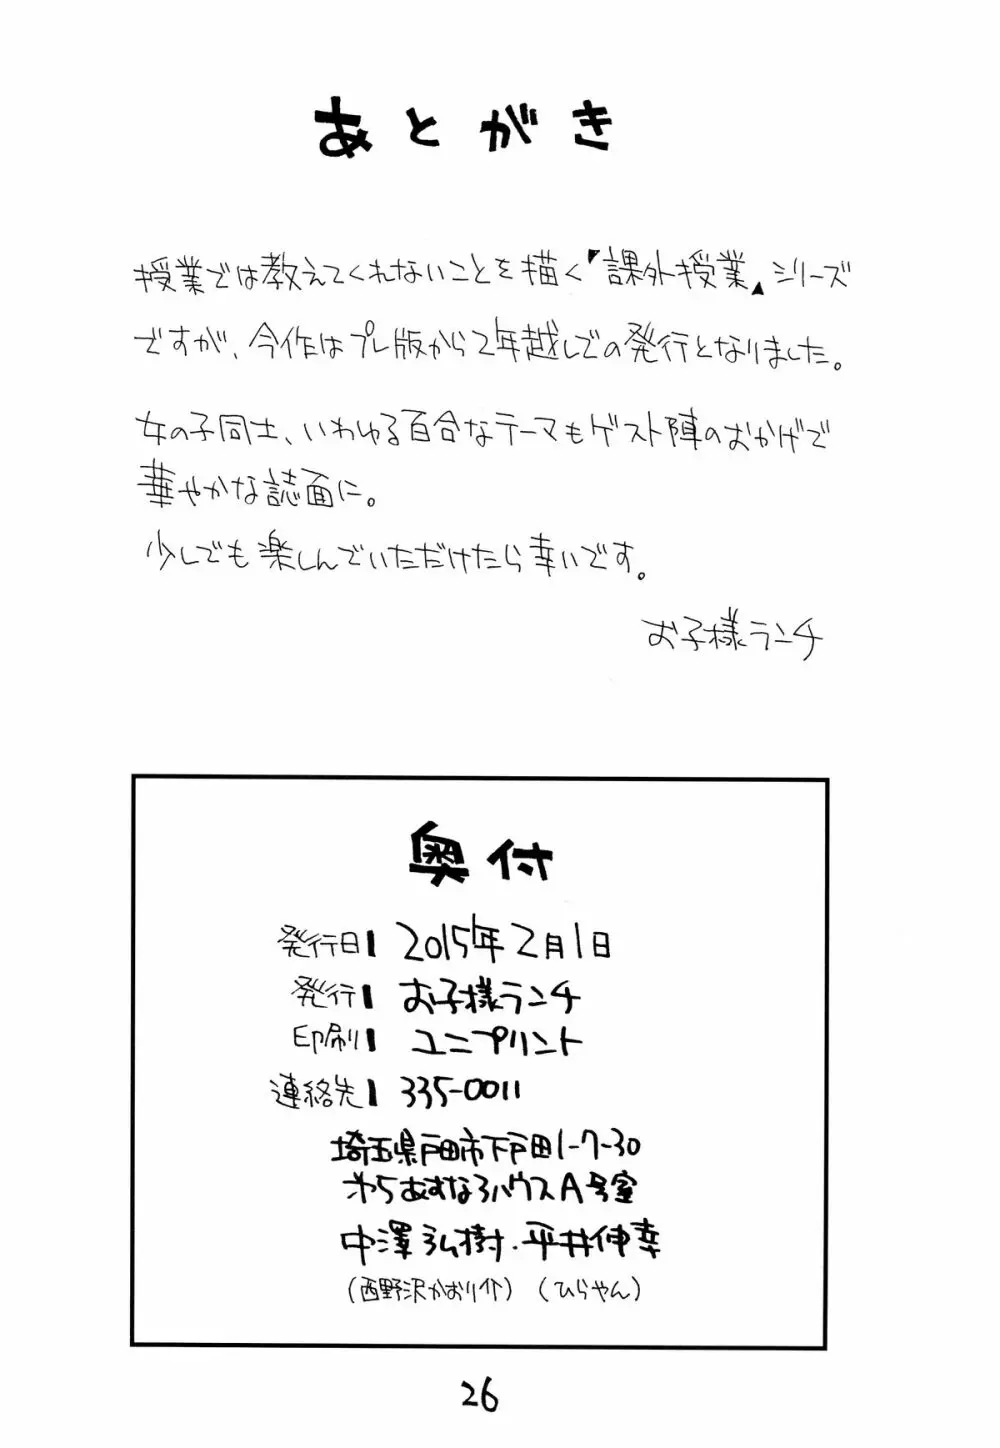 あとがき
授業では教えてくれないことを描く『課外授業』シリーズ
ですが、今作はプレ版から2年越しでの発行となりました。
女の子同士、いわゆる百合なテーマもゲスト陣のおかげで
華やかな誌面に。
少しでも楽しんでいただけたら幸いです。
お子様ランチ
奥付
発行日| 2015年2月1日
発行| お子様ランチ
印刷| ユニプリント
連絡先| 335-0011
埼玉県戸田市下戸田1-7-30
第5あすなろハウスA号室
中澤弘樹.平井伸幸
(西野沢かおり介) (ひらやん)
26